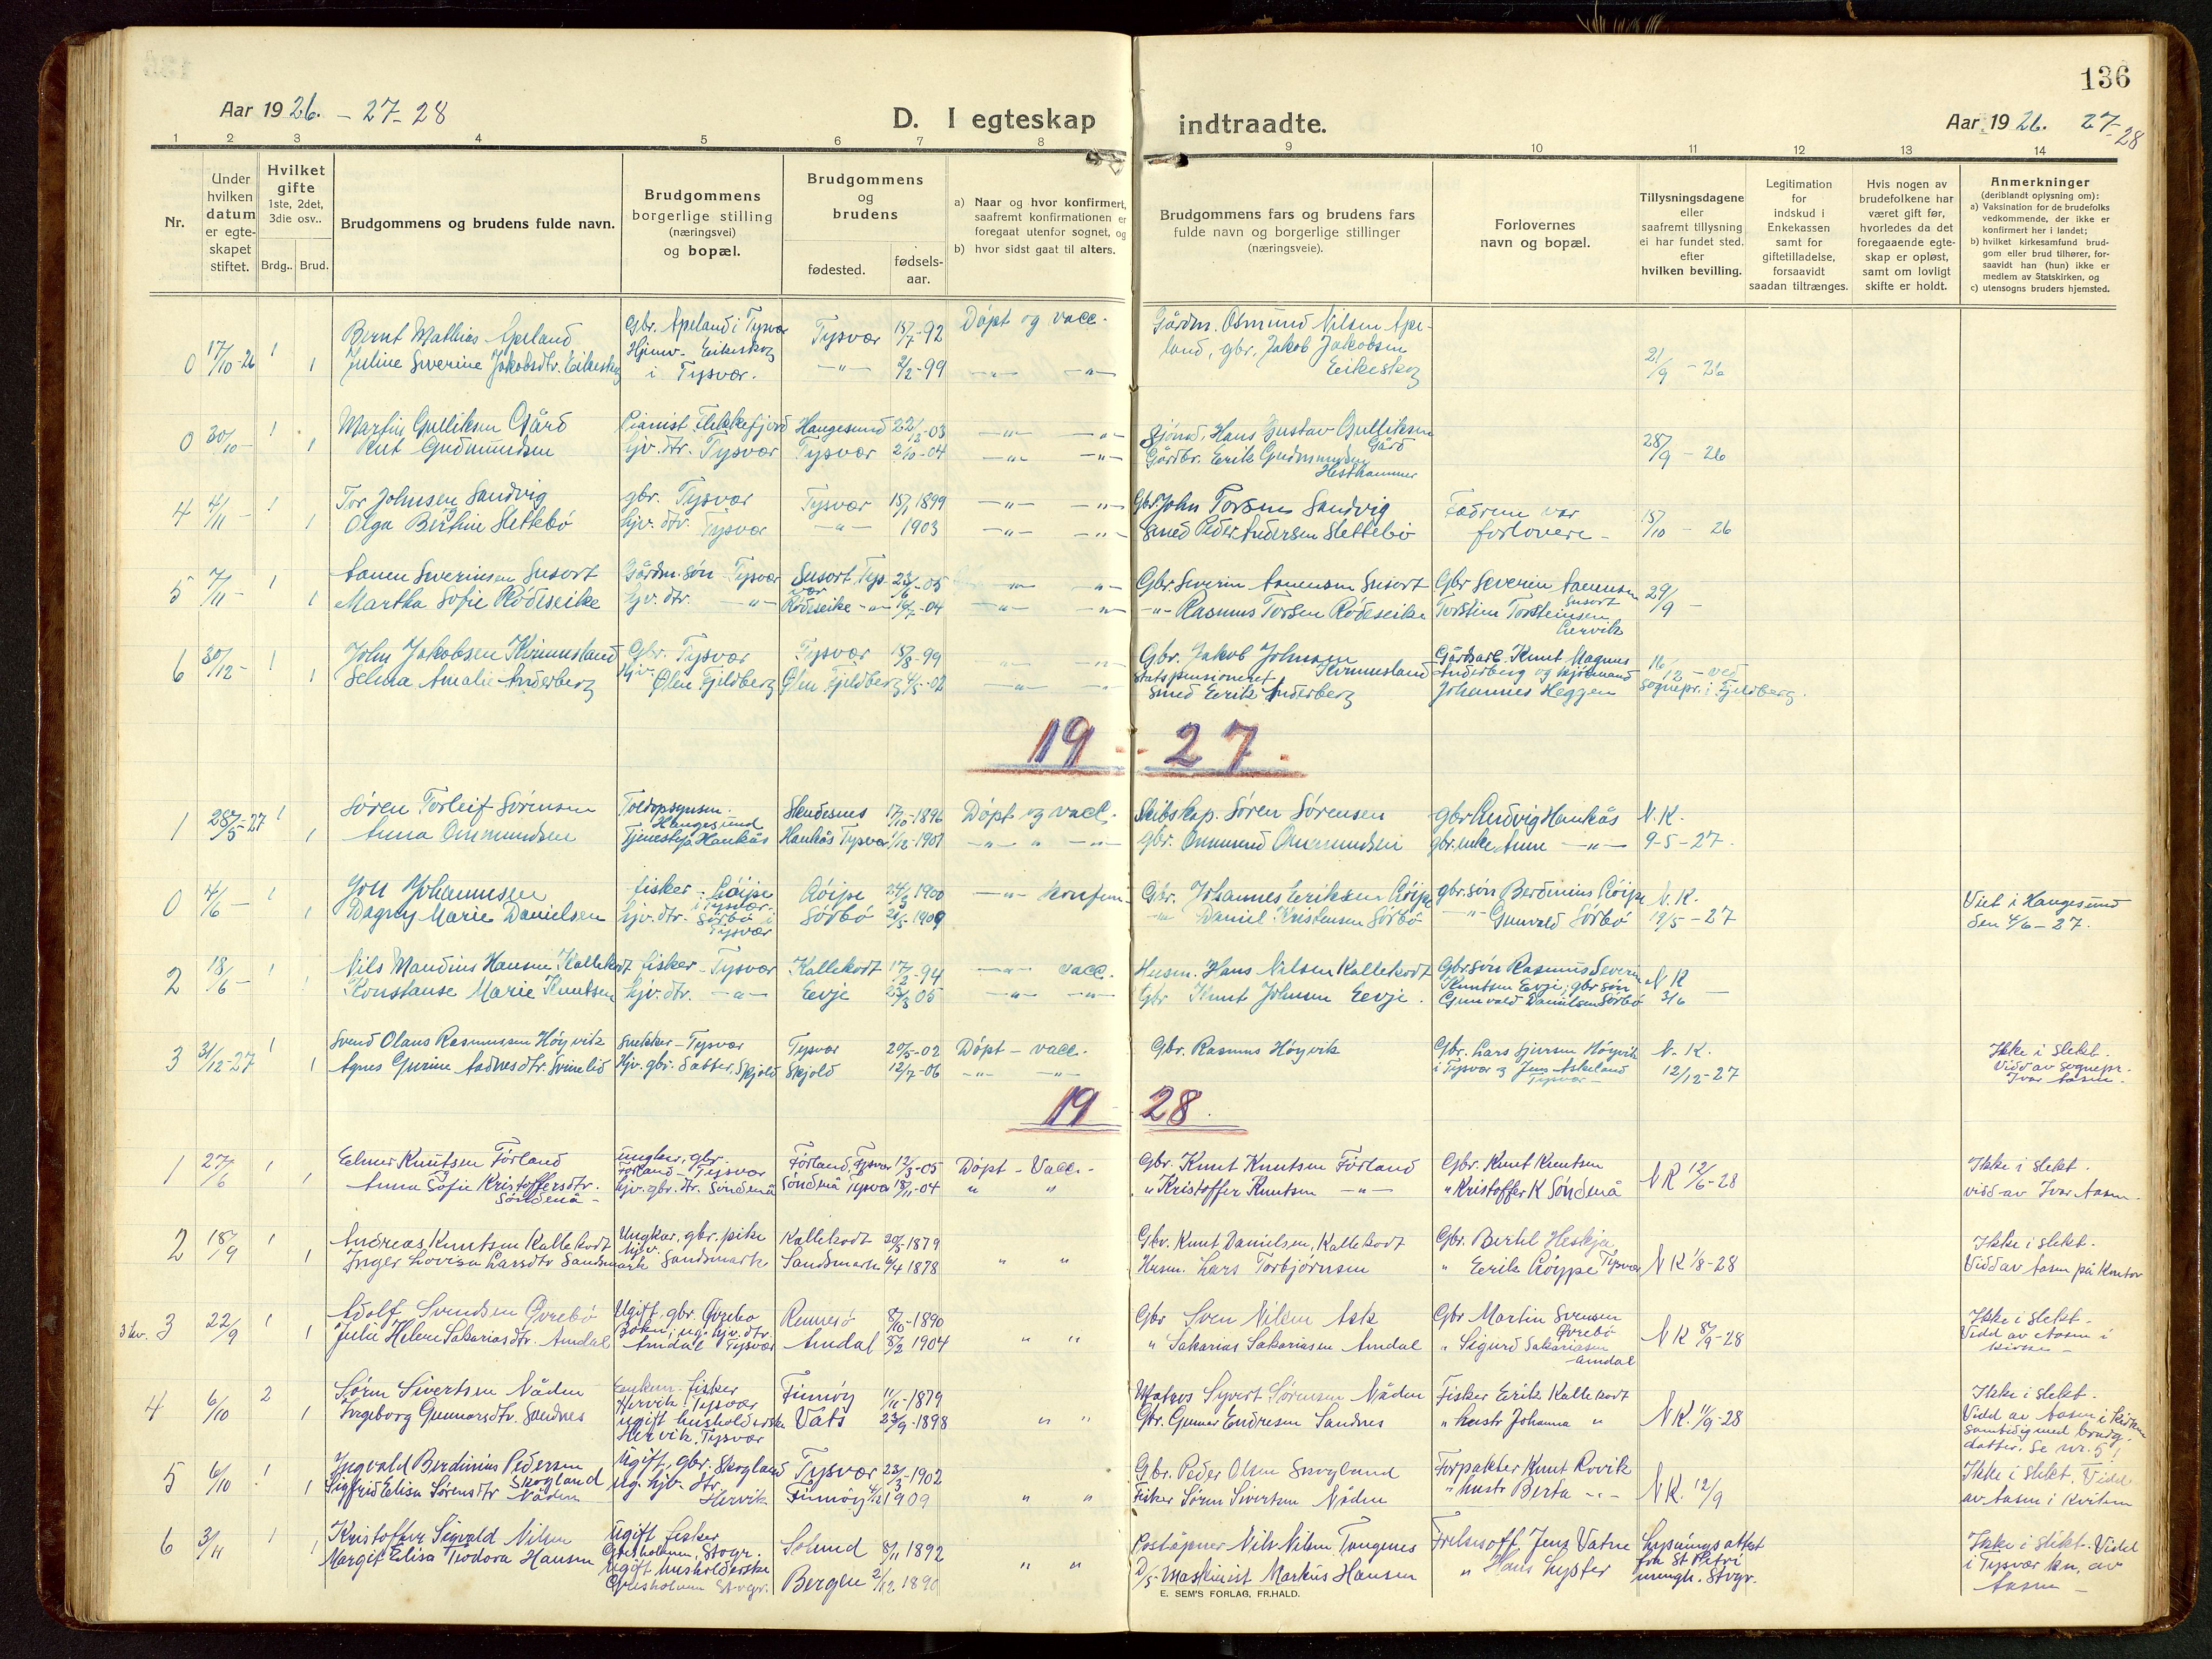 136
Aar 1926. - 27- 28
D. I egteskap indtraadte.
Aar 1926. 27-28
1 2 3 4 5 6 7 8 9 10 11 12 13 14
Nr.
Under hvilken datum er egteskapet stiftet.
Hvilket gifte 1ste, 2det, 3die osv..
Brdg.. Brud.
Brudgommens og brudens fulde navn.
Brudgommens borgerlige stilling (næringsvei) og bopæl.
Brudgommens og brudens
fødested.
fødsels-aar.
a) Naar og hvor konfirmert, saafremt konfirmationen er foregaat utenfor sognet, og
b) hvor sidst gaat til alters.
Brudgommens fars og brudens fars fulde navn og borgerlige stillinger (næringsveie).
Forlovernes navn og bopæl.
Tillysningsdagene eller saafremt tillysning ei har fundet sted. efter hvilken bevilling.
Legitimation for indskud i Enkekassen samt for giftetilladelse, forsaavidt saadan tiltrænges.
Hvis nogen av brudefolkene har været gift før, hvorledes da det foregaaende egteskap er opløst, samt om lovligt skifte er holdt.
Anmerkninger (deriblandt oplysning om):
a) Vaksination for de brudefolks vedkommende, der ikke er konfirmert her i landet;
b) hvilket kirkesamfund brudgom eller brud tilhører, forsaavidt han (hun) ikke er medlem av Statskirken, og
c) utensogns bruders hjemsted.
0 17/10-26 1 Bernt Mathias Apeland Gbr. Apeland i Tysvær Tysvær 15/7-92 Döpt og vacc. Gårdm. Osmund Nilsen Ape-
1 Juline Severine Jakobsdtr. Eikeskog Hjemv. Eikeskog i Tysvær. -"- 2/2-99 -"- -"- land, gbr. Jakob Jakobsen Eikeskog 21/9 - 26
0 30/10- 1 Martin Gulliksen Gård Pianist Flekkefjord Haugesund 22/12-03 -"- -"- Sjömd. Hans Gustav Gulliksen Gård
1 Rut Gudmundsen hjv. dtr. Tysvær Tysvær 2/10-04 -"- -"- Gårdbr. Erik Gudmundsen Hesthammer 28/9 - 26
4 4/11 - 1 Tor Johnsen Sandvig gbr. Tysvær Tysvær 15/1 1899 -"- -"- Gbr. John Torsen Sandvig Fædrene var
1 Olga Bertine Slettebö hjv. dtr. Tysvær -"- 1903 -"- -"- Smed Peder Andersen Slettebö forlovere - 15/10 - 26
5 7/11 - 1 Aanen Severinsen Susort Gårdm. sön Tysvær Susort Tysvær 23/6-05 -"- -"- Gbr. Severin Aanensen Susort Gbr Severin Aanensen Susort
1 Martha Sofie Rödseike hjv. dtr. -"- Rödseike -"- 10/7-04 -"- -"- -"- Rasmus Torsen Rödseike Torstein Torsteinsen Gervik 29/9 -
6 30/12- 1 John Jakobsen Kvinnesland Gbr. Tysvær Tysvær 15/8-99 -"- -"- Gbr. Jakob Johnsen Kvinnesland Gårdsarb. Knut Magnus
1 Selma Amalie Anderberg Hjv. Ölen Fjeldberg Ölen Fjeldberg 4/5-02 -"- -"- Statspensioneret smed Eerik Anderberg Anderberg og skjöemand Johannes Heggen 16/12 - ved sognepr. i Fjeldberg.
19 - 27.
1 28/5-27 1 Sören Torleif Sörensen Toldopsynsm. Haugesund Skudesnes 17/10-1896 Döpt og vacc. Skibskap. Sören Sörensen gbr. Ludvig Haukås N.K.
1 Anna Ommundsen Tjenestep. Haukås Haukås Tysvær 1/12-1907 -"- " -"- gbr. Ommund Ommundsen gbr. enke Anne -"- 9-5-27.
0 4/6 - 1 Jon Johannessen fisker - Röipe i Tysvær Röipe 24/3 1900 -"- konfirm. Gbr. Johannes Eriksen Röipe gbr. sön Berdinius Röipe N.K. Viet i Haugesund
1 Dagny Marie Danielsen hjv. dtr. Sörbö i Tysvær Sörbö 21/5-1909 -"- Daniel Kristensen Sörbö -"- Gunvald Sörbö 19/5-27 den 4/6-27.
2 18/6 - 1 Nils Maudius Hansen Kallekodt fisker - Tysvær Kallekodt 17/2-94 -"- vacc. Husm. Hans Nilsen Kallekodt Gbr. sön Rasmus Severin N K
1 Konstanse Marie Knutsen hjv. dtr. -"- Eevje 23/3 05 -"- -"- Gbr Knut Johnsen Eevje. Knutsen Eevje, gbr sön Gunvald Danielsen Sörbö 3/6 -
3 31/12-27 1 Svend Olaus Rasmussen Höyvik Snekker - Tysvær Tysvær 20/5-02 Döpt - vacc. Gbr. Rasmus Höyvik Gbr. Lars Sjursen Höyvik N.K. Ikke i slekt.
1 Agnes Gurine Aadnesdtr. Svinelid Hjv. gbr. datter. Skjold Skjold 12/7-06 -"- -"- i Tysvær og Jens Askeland Tysvær - 12/12-27 Vidd av sognepr. Ivar Aasen.
19 28.
1 27/6 1 Eelmer Knutsen Förland ungkar, gbr. Förland - Tysvær Förland, Tysvær 12/3-05 Döpt - Vacc. - Gbr. Knut Knutsen Förland Gbr. Knut Knutsen Ikke i slekt.
1 Anna Sofie Kristoffersdtr. Söndenå - hjv. gbr. dtr. Söndenå Söndenå Tysvær 18/11-04 " " " Kristoffer Knutsen -"- " Kristoffer K Söndenå N K 12/6-28 vidd av Ivar Aasen.
2 18/9 1 Andreas Knutsen Kallekodt Ungkar, gbr. pike Kallekodt 20/5 1879 Gbr. Knut Danielsen, Kallekodt Gbr. Bertel Heskja Ikke i slekt.
1 Inger Lovisa Larsdtr Sandsmark hjv. Sandsmark Sandsmark 6/4 1878 " " Husm. Lars Torbjörnsen " Eerik Röippe Tysvær N K 1/8-28 Vidd av Aasen på Kontor
3 kv. 3 22/9 1 Adolf Svendsen Övrebö Ugift, gbr. Övrebö Rennesö 8/10-1890 Gbr Sven Nilsen Ask Gbr Martin Svensen Övrebö Ikke i slekt.
1 Julie Helene Sakariasdtr. Amdal Bokn, ug. hjv. dtr. Amdal Tysvær Amdal 8/2 1904 " " " Sakarias Sakariasen Amdal " Sigurd Sakariasen Amdal N K 8/9-28 Vidd av Aasen i kirken -
4 6/10 2 Sören Sivertsen Nåden Enkem. fisker Hervik Tysvær Finnöy 11/11-1879 Matros Syvert Sörensen Nåden Fisker Erik Kallekodt Ikke i slekt.
1 Ingeborg Gunnarsdtr. Sandnes Ugift husholderske Hervik, Tysvær Vats 23/9-1898 " " Gbr. Gunnar Endresen Sandnes " hustr Johanna " N.K. 11/9-28 Vidd av Aasen i kirken samtidig med brudg. datter. Se nr. 5!
5 6/10 1 Ingvald Berdinius Pedersen Skogland Ugift, gbr. Skogland Tysvær 23/3-1902 Gbr. Peder Olsen Skogland Forpakter Knut Rovik Ikke i slekt, Vidd
1 Sigfrid Elisa Sörensdtr Nåden ug. hjv. dtr. Hervik Finnöy 4/12 1909 " " Fisker Sören Sivertsen Nåden " hustr Berta -"- N K. 12/9 av Aasen i kirken
6 3/11 1 Kristoffer Sigvald Nilsen Ugift fisker Solund 8/11 1892 Poståpner Nils Nilsen Tungenes Frelsesoff. Jens Vatne Lysningsattest Ikke i slekt. Vidd
1 Margit Elisa Teodora Hansen Ugift husholderske Bergen 2/12 1890 " " D/S-Maskinist Markus Hansen " Hans Lyster fra St. Petri menigh. Stvgr. i Tysvær kn. av Aasen -
E. SEM'S FORLAG, FR.HALD.